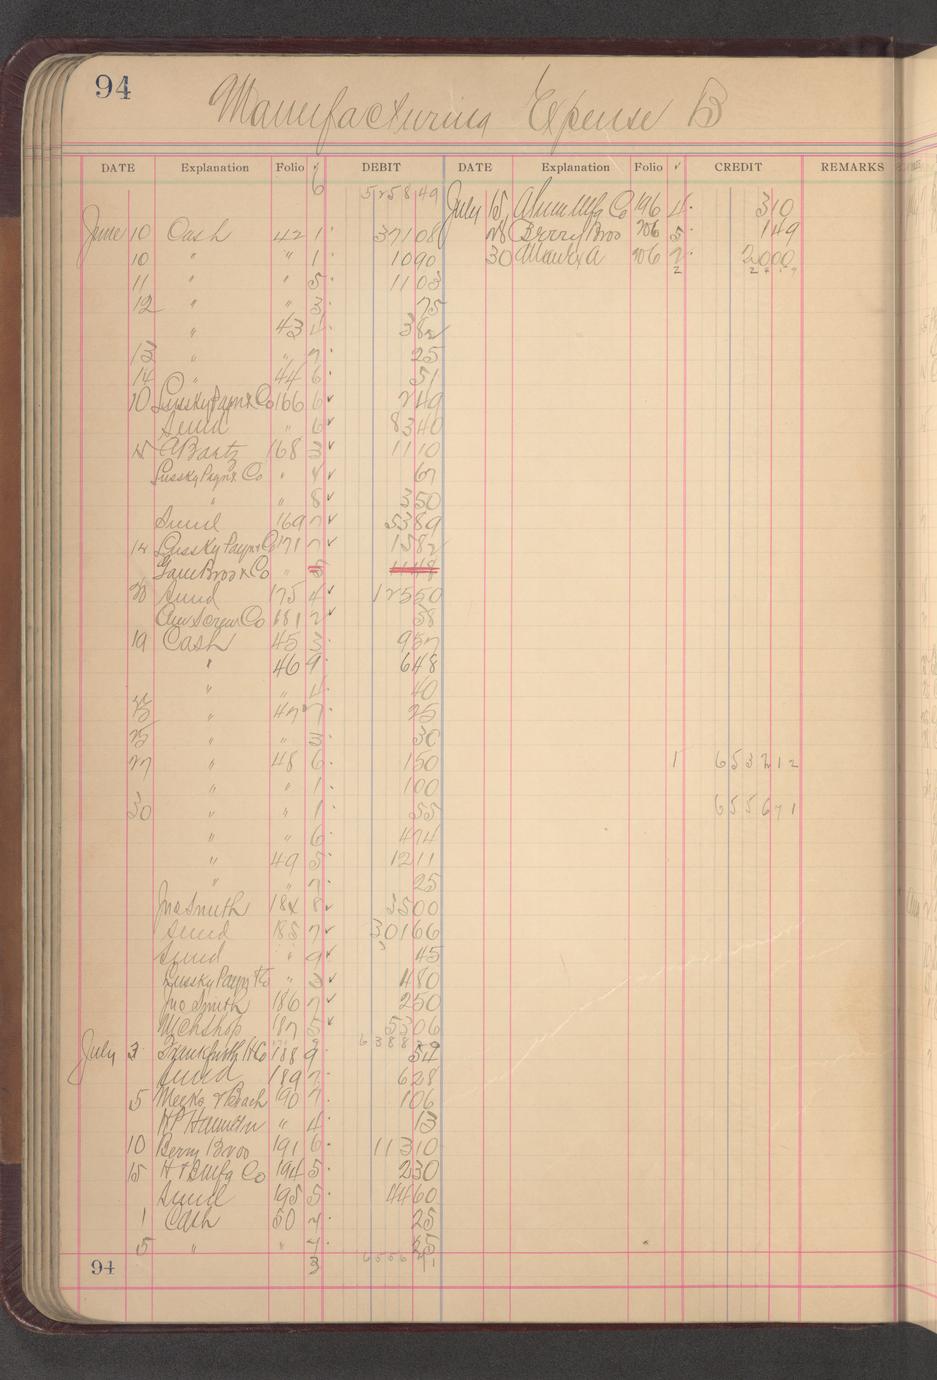 94
Manufacturing Expense B
DATE Explanation Folio ✓ DEBIT DATE Explanation Folio ✓ CREDIT REMARKS
6 525849
July 15 Alum Mfg Co 196 4 310
June 10 Cash 42 1 37108 28 Berry Bros 206 5 149
10 " " 1 1090 30 206 2 2000
2
11 " " 5 1103
12 " " 3 75
" 43 4 382
13 " " 7 25
14 " 44 6 51
10 Gussky Payn & Co 166 6 ✓ 249
Sund " 6 ✓ 8340
15 A Bartz 168 3 ✓ 1110
Gussky Payn & Co " 4 ✓ 67
" " 8 ✓ 350
Sund 169 7 ✓ 5389
14 Gussky Payn & Co 171 7 ✓ 1582
Bros & Co " 5 1148
20 Sund 175 4 ✓ 12550
Am Screw Co 181 2 ✓ 58
19 Cash 45 3 957
" 46 9 648
" " 4 40
" 47 7 25
25 " " 3 30
27 " 48 6 150 1 653212
" " 1 100
30 " " 1 55 655671
" " 6 474
" 49 5 1211
" " 7 25
Jno Smith 184 8 ✓ 3500
Sund 185 7 ✓ 30166
Sund " 9 ✓ 45
Gussky Payn & Co " 3 ✓ 480
Jno Smith 186 7 ✓ 250
Mchshop 187 5 ✓ 5306
July 3 Frankfurth H Co 188 9 54
Sund 189 7 628
5 Meeks & Beach 190 7 106
HP " 4 13
10 Berry Bros 191 6 11310
15 H & B Mfg Co 194 5 230
Sund 195 5 4460
1 Cash 50 7 25
5 " " 7 25
94 3 655671